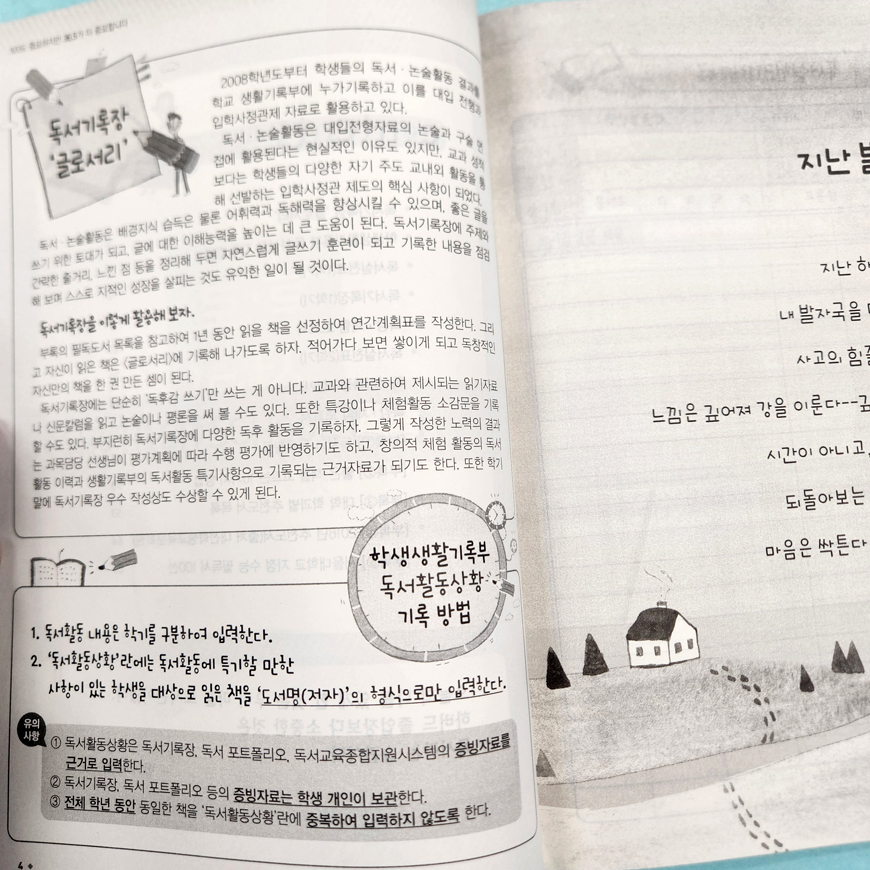 독서기록장
'글로서리'
2008학년도부터 학생들의 독서 · 논술활동 결과를
학교 생활기록부에 누가기록하고 이를 대입 전형과
입학사정관제 자료로 활용하고 있다.
독서 · 논술활동은 대입전형자료의 논술과 구술 면
접에 활용된다는 현실적인 이유도 있지만, 교과 성적
보다는 학생들의 다양한 자기 주도 교내외 활동을 통
해 선발하는 입학사정관 제도의 핵심 사항이 되었다.
독서 · 논술활동은 배경지식 습득은 물론 어휘력과 독해력을 향상시킬 수 있으며, 좋은 글을
쓰기 위한 토대가 되고, 글에 대한 이해능력을 높이는 데 큰 도움이 된다. 독서기록장에 주제와
간략한 줄거리, 느낀 점 등을 정리해 두면 자연스럽게 글쓰기 훈련이 되고 기록한 내용을 점검
해 보며 스스로 지적인 성장을 살피는 것도 유익한 일이 될 것이다.
독서기록장을 이렇게 활용해 보자.
부록의 필독도서 목록을 참고하여 1년 동안 읽을 책을 선정하여 연간계획표를 작성한다. 그리
고 자신이 읽은 책은 <글로서리>에 기록해 나가도록 하자. 적어가다 보면 쌓이게 되고 독창적인
자신만의 책을 한 권 만든 셈이 된다.
독서기록장에는 단순히 '독후감 쓰기'만 쓰는 게 아니다. 교과와 관련하여 제시되는 읽기자료
나 신문칼럼을 읽고 논술이나 평론을 써 볼 수도 있다. 또한 특강이나 체험활동 소감문을 기록
할 수도 있다. 부지런히 독서기록장에 다양한 독후 활동을 기록하자. 그렇게 작성한 노력의 결과
는 과목담당 선생님이 평가계획에 따라 수행 평가에 반영하기도 하고, 창의적 체험 활동의 독서
활동 이력과 생활기록부의 독서활동 특기사항으로 기록되는 근거자료가 되기도 한다. 또한 학기
말에 독서기록장 우수 작성상도 수상할 수 있게 된다.
학생생활기록부
독서활동상황
기록 방법
1. 독서활동 내용은 학기를 구분하여 입력한다.
2. '독서활동상황'란에는 독서활동에 특기할 만한
사항이 있는 학생을 대상으로 읽은 책을 '도서명(저자)'의 형식으로만 입력한다.
유의
사항
① 독서활동상황은 독서기록장, 독서 포트폴리오, 독서교육종합지원시스템의 증빙자료를
근거로 입력한다.
② 독서기록장, 독서 포트폴리오 등의 증빙자료는 학생 개인이 보관한다.
③ 전체 학년 동안 동일한 책을 '독서활동상황'란에 중복하여 입력하지 않도록 한다.
4
지난
지난 해
내 발자국을
사고의 힘
느낌은 깊어져 강을 이룬다--
시간이 아니고,
되돌아보는
마음은 싹튼다